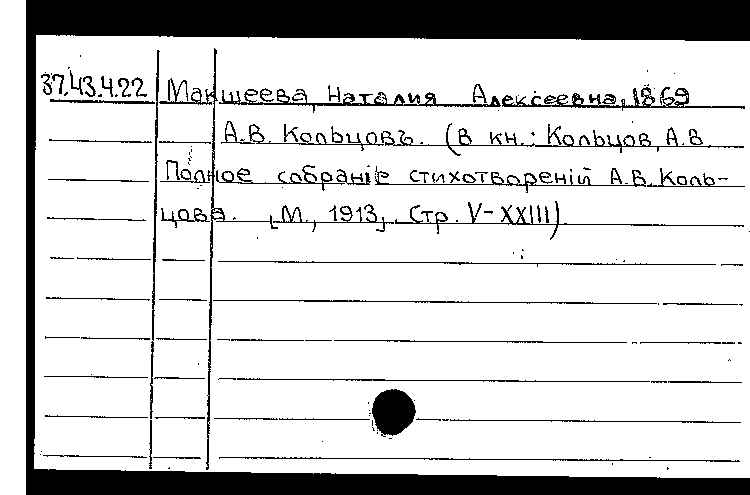 37.43.4.22 Макшеева, Наталия Алексеевна, 1869
А.В. Кольцовъ. (В кн.: Кольцов, А.В.
Полное собраніе стихотвореній А.В. Коль-
цова. [М., 1913]. Стр. V-XXIII)